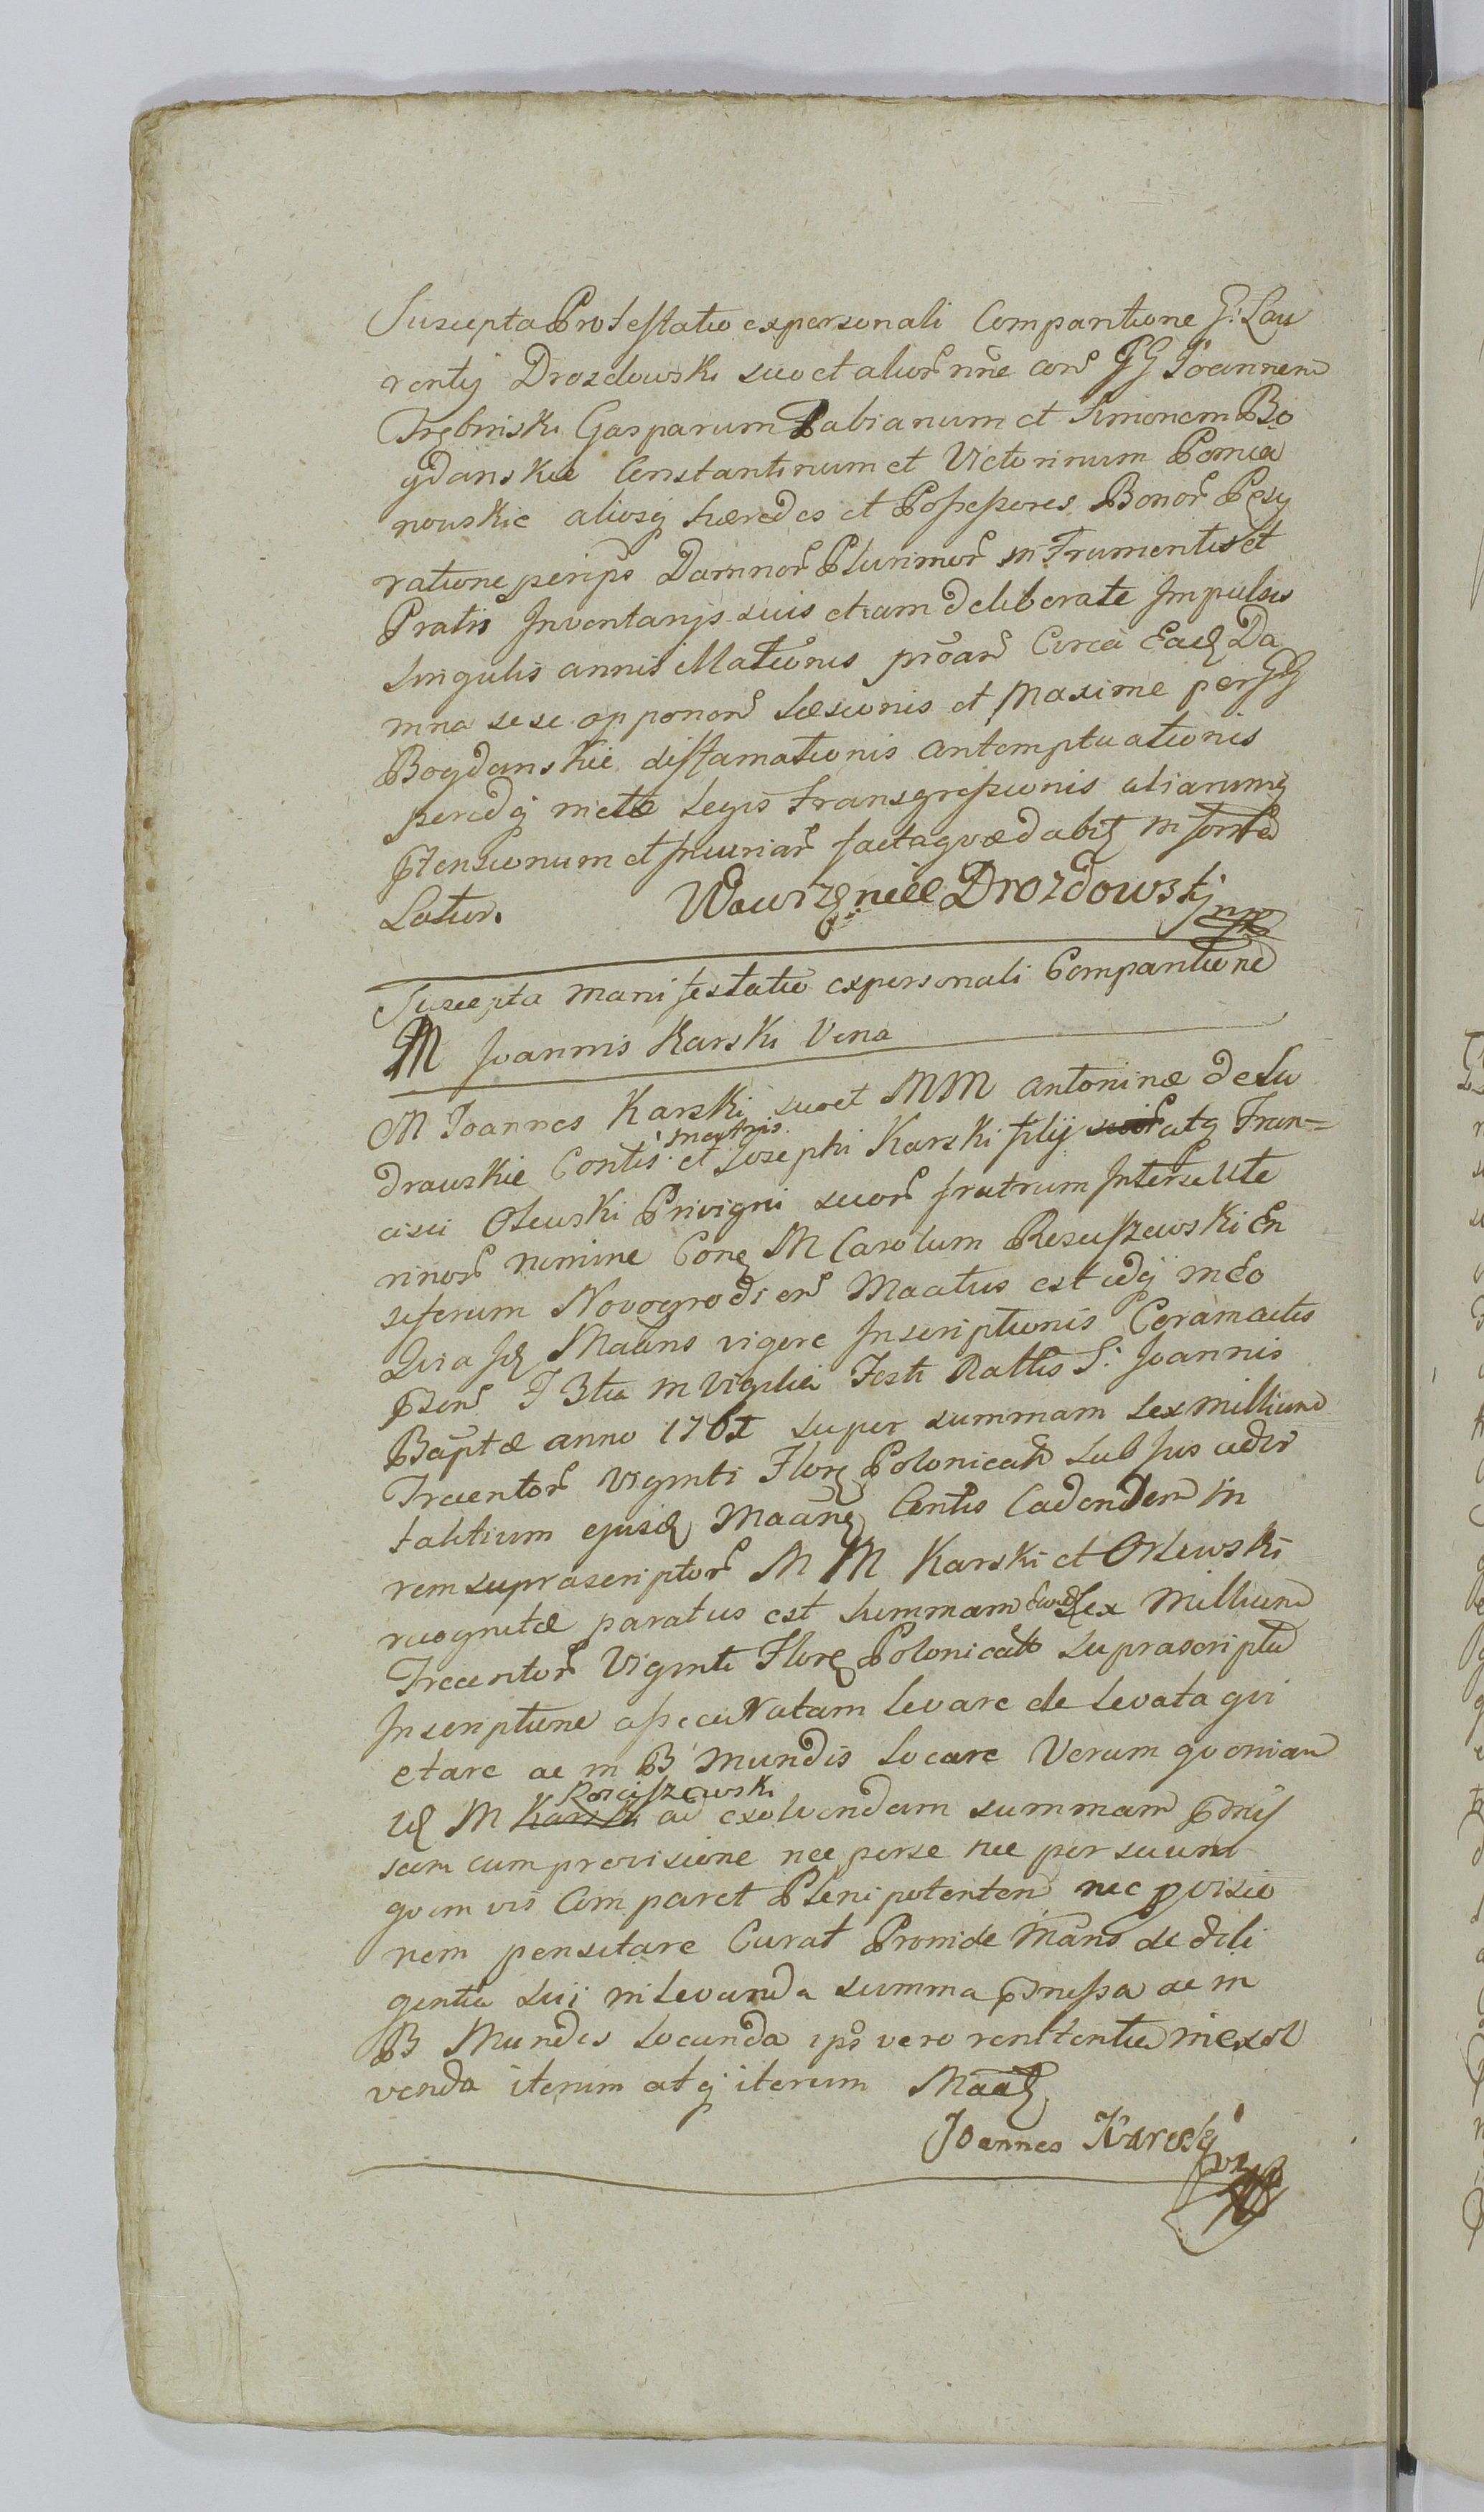 Suscepta Protestatio ex personali Comparitione G: Lau
rentij Drozdowski suo et alior nne con GG Joannem
Trębinski Gasparum Fabianum et Simonem Bo
gdanskie Constantinum et Victorinum Pomia
nouskie aliosq hæredes et Possessores Bonor Pęsy
ratione per ips Damnor Plurimor in Frumentis et
Pratis Inventarijs suis etiam deliberate Impulsis
singulis annis illationis proar Circa Eadę Da
mna sese opponen læsionis et Maxime per GG
Bogdanskie diffamationis contemptuationis
peredq metæ Legis transgressionis aliarumq
Ptensionum et Iniuriar facta quæ dabit in forma
Latior.
Wawrzeniec Drozdowski mp
Suscepta Manifestatio ex personali Comparitione
M Joannis Karski Vena
M Joannes Karski suo et MM Antoninæ de Su
drauskie Contis matris et Josephi Karski filij suor atq Fran=
cisci Olewski Privigni suor fratrum Inter se Ute
rinor nomine Conę M Carolum Rosciszewski En
siferum Novogrodien Maatus est idq in eo
Quia Idę Maans vigore Inscriptionis Coram actis
Psen F 3tia in Vigilia Festi Nattis S: Joannis
Baptæ anno 1761 super summam sex millium
Trecentor Viginti Flor Polonical sub Jus advi
talitium ejusdę Maanę Contis Cadendem in
rem suprascriptor MM Karski et Orlewski
recognitæ paratus est summam eandę sex Millium
Trecentor Viginti Flor Polonical suprascripta
Inscriptione assecuratam levare de levata qui
etare ac in B mundis locare Verum quoniam
Idę M Karski Rosciszewski ad exolvendam summam Pmis
sam cum provisione nec per se nec per suum
quemvis Comparet Plenipotentem nec pvisio
nem pensitare Curat Proinde Mans de dili
gentia sui in levanda summa Pmissa ac in
B Mundis locanda ips vero renitentia in exol
venda iterum atq iterum Maatę
Joannes Karski mp